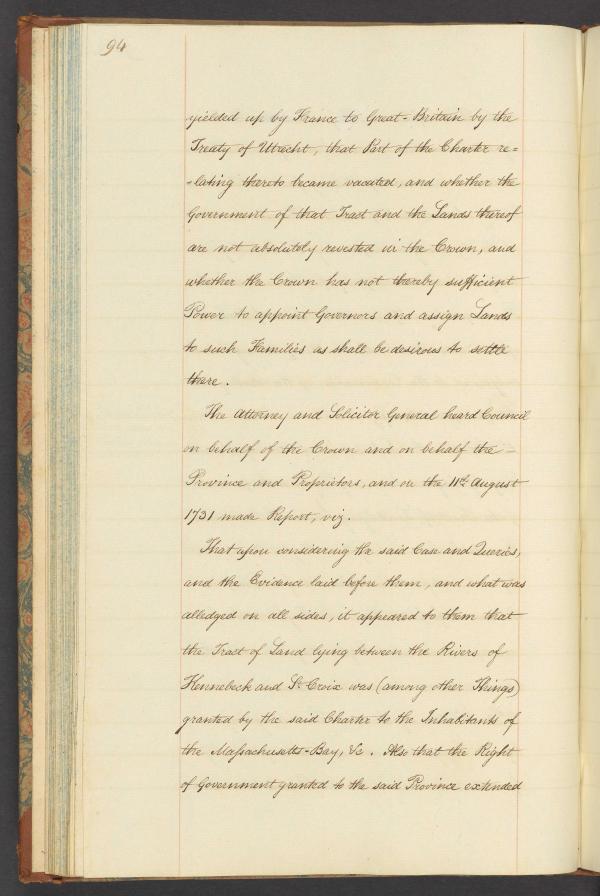 94
yielded up by France to Great-Britain by the
Treaty of Utrecht, that Part of the Charter re=
-lating thereto became vacated, and whether the
Government of that Tract and the Lands thereof
are not absolutely revested in the Crown, and
whether the Crown has not thereby sufficient
Power to appoint Governors and assign Lands
to such Families as shall be desirous to settle
there.
The Attorney and Solicitor General heard Council
on behalf of the Crown and on behalf the -
Province and Proprietors, and on the 11th August
1731 made Report, viz.
That upon considering the said Case and Queries,
and the Evidence laid before them, and what was
alledged on all sides, it appeared to them that
the Tract of Land lying between the Rivers of
Kennebeck and St. Croix was (among other Things)
granted by the said Charter to the Inhabitants of
the Massachusetts-Bay, &c. Also that the Right
of Government granted to the said Province extended